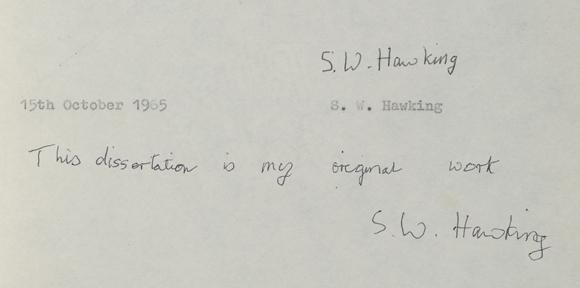 S.W. Hawking
15th October 1965 S. W. Hawking
This dissertation is my original work
S.W. Hawking